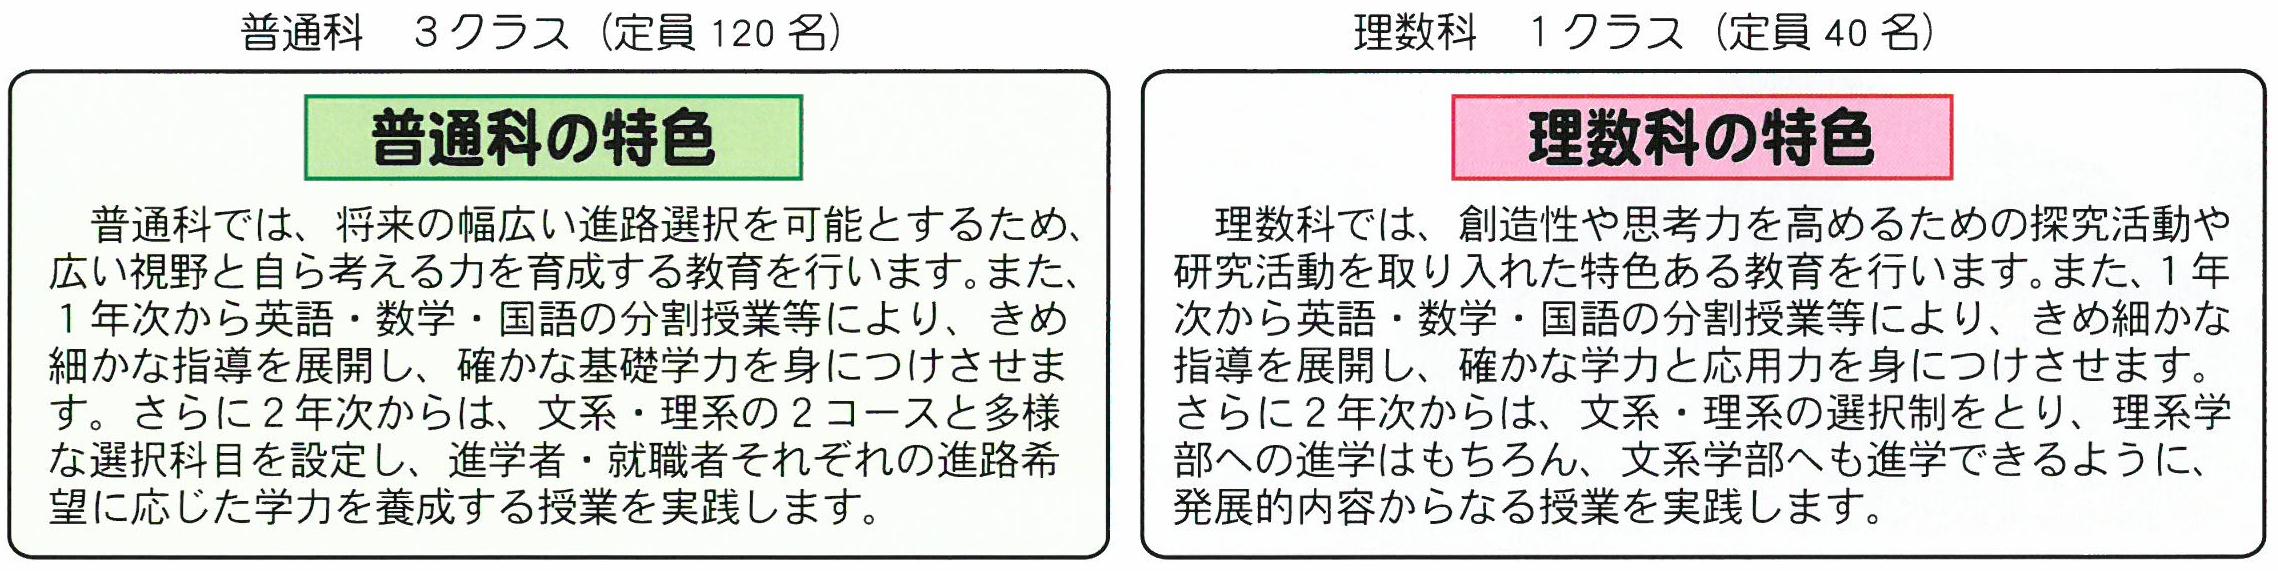 普通科　３クラス（定員 120 名）
普通科の特色
　普通科では、将来の幅広い進路選択を可能とするため、
広い視野と自ら考える力を育成する教育を行います。また、
１年次から英語・数学・国語の分割授業等により、きめ
細かな指導を展開し、確かな基礎学力を身につけさせま
す。さらに２年次からは、文系・理系の２コースと多様
な選択科目を設定し、進学者・就職者それぞれの進路希
望に応じた学力を養成する授業を実践します。
理数科　１クラス（定員 40 名）
理数科の特色
　理数科では、創造性や思考力を高めるための探究活動や
研究活動を取り入れた特色ある教育を行います。また、１年
次から英語・数学・国語の分割授業等により、きめ細かな
指導を展開し、確かな学力と応用力を身につけさせます。
さらに２年次からは、文系・理系の選択制をとり、理系学
部への進学はもちろん、文系学部へも進学できるように、
発展的内容からなる授業を実践します。